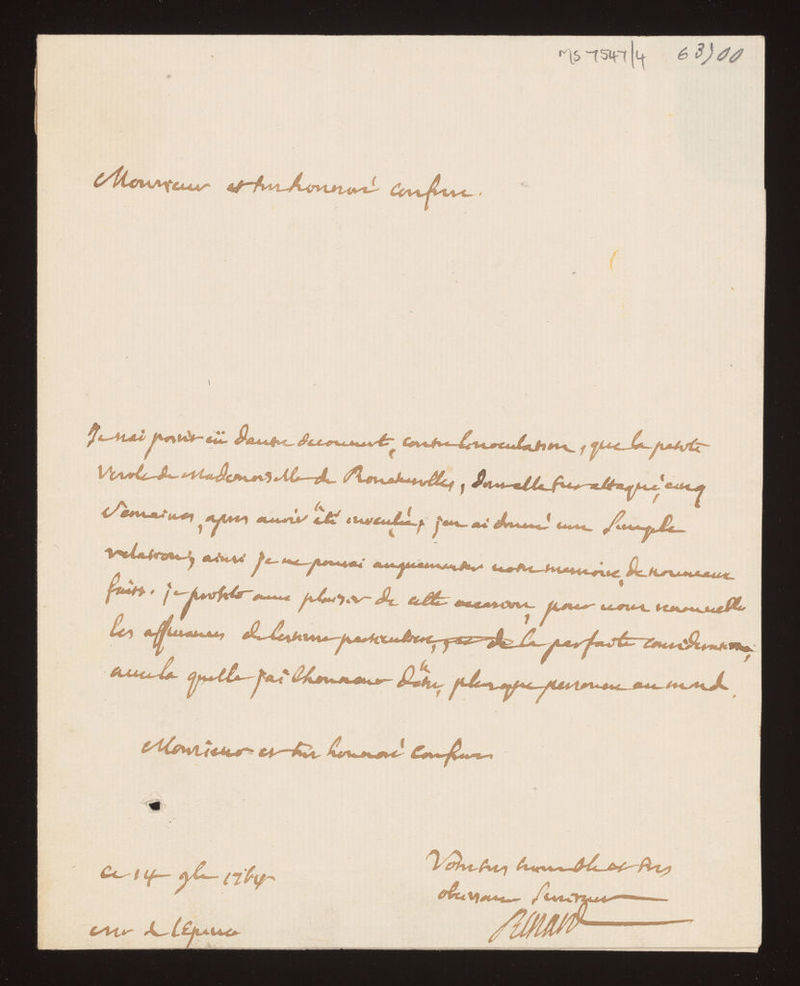 MS 7547/4 63500
Monsieur et tres honoré confrere.
Je nai point eü dautre decouvert, contre linoculation, que la petite
Verole de Mademoiselle de Roncherolles, dont elle fut attaqué, cinq
Semaines, apres avoir été inoculée, jen ai donné une Simple
relation, ainsi je ne pourai augmenter votre memoire, de nouveaux
faits. je profite avec plaisir de cette occasion, pour vous renouveller
les assurances de lestime particuliere, et de la parfaite consideration,
avec la quelle jai lhonneur dêtre, plusque personne au monde.
Monsieur et tres honoré Confrere
Votre tres humble et tres
ce 14 9bre 1764
obeissant Serviteur
mr de lEpine
Renard